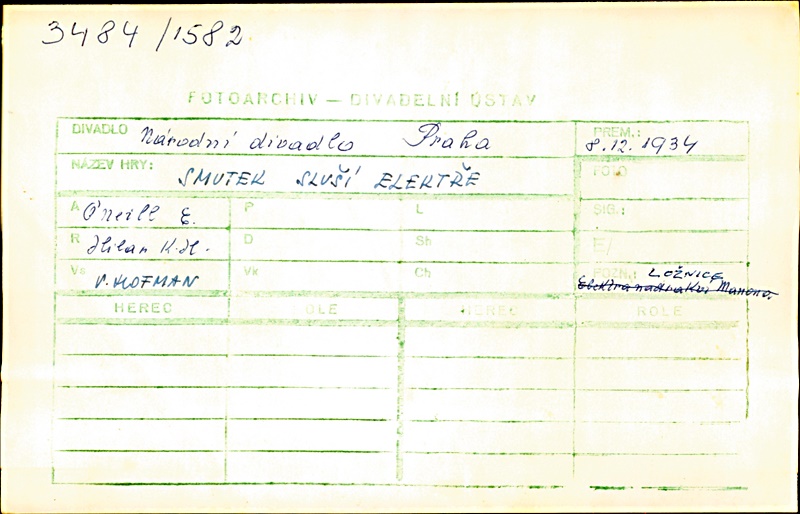 3484/1582
FOTOARCHIV — DIVADELNÍ ÚSTAV
DIVADLO Národní divadlo Praha PREM.: 8.12.1934
NÁZEV HRY: SMUTEK SLUŠÍ ELEKTŘE FOTO
A O'Neill E. P L SIG.:
R Hilar K.H. D Sh E/
Vs V. HOFMAN Vk Ch POZN.: LOŽNICE
Mannona
HEREC OLE HEREC ROLE